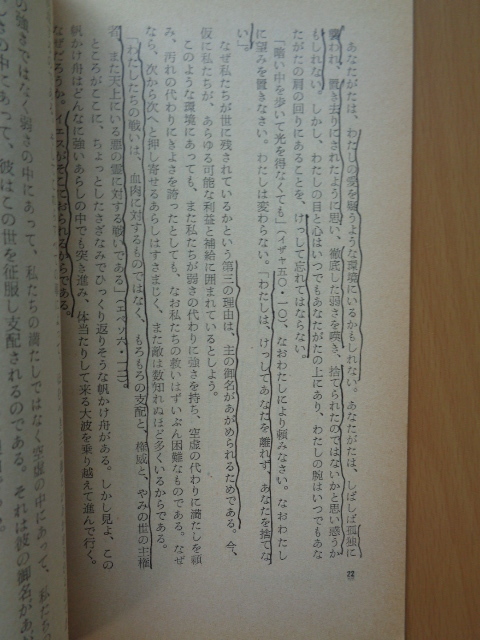 あなたがたは、わたしの愛を疑うような環境にいるかもしれない。あなたがたは、しばしば孤独に
襲われ、置き去りにされたように思い、徹底した弱さを嘆き、捨てられたのではないかと思い惑うか
もしれない。しかし、わたしの目と心はいつでもあなたがたの上にあり、わたしの腕はいつでもあな
たがたの肩の回りにあることを、けっして忘れてはならない。
「暗い中を歩いて光を得なくても」(イザヤ五〇・一〇)、なおわたしにより頼みなさい。なおわたし
に望みを置きなさい。わたしは変わらない。「わたしは、けっしてあなたを離れず、あなたを捨てな
い」。
なぜ私たちが世に残されているかという第三の理由は、主の御名があがめられるためである。今、
仮に私たちが、あらゆる可能な利益と補給に囲まれているとしよう。
このような環境にあっても、また私たちが弱さの代わりに強さを持ち、空虚の代わりに満たしを頼
み、汚れの代わりにきよさを誇ったとしても、なお私たちの救いはずいぶん困難なものである。なぜ
なら、次から次へと押し寄せるあらしはすさまじく、また敵は数知れぬほど多くいるからである。
「わたしたちの戦いは、血肉に対するものではなく、もろもろの支配と、権威と、やみの世の主権
者、また天上にいる悪の霊に対する戦いである」(エペソ六・一二)
ところがここに、ちょっとしたさざなみでひっくり返りそうな帆かけ舟がある。しかし見よ、この
帆かけ舟はどんなに強いあらしの中でも突き進み、体当たりして来る大波を乗り越えて進んで行く。
なぜだろうか。イエスがそこにおられるからである。
の強さではなく弱さの中にあって、私たちの満たしではなく空虚の中にあって、私た
の中にあって、彼はこの世を征服し支配されるのである。それは彼の御名があ